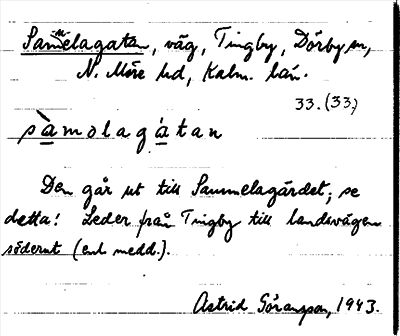 Sammelagatan, väg, Tingby, Dörby sn,
N. Möre hd, Kalm. län.
33. (33)
sàmolagátan
Den går ut till Sammelagärdet; se
detta! Leder från Tingby till landsvägen
söderut (enl. medd.).
Astrid Göransson, 1943.